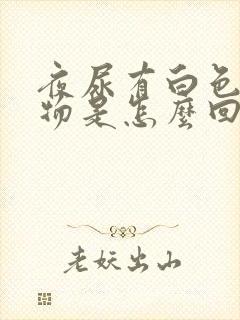 夜尿有白色
物是怎麼回
老妖出山